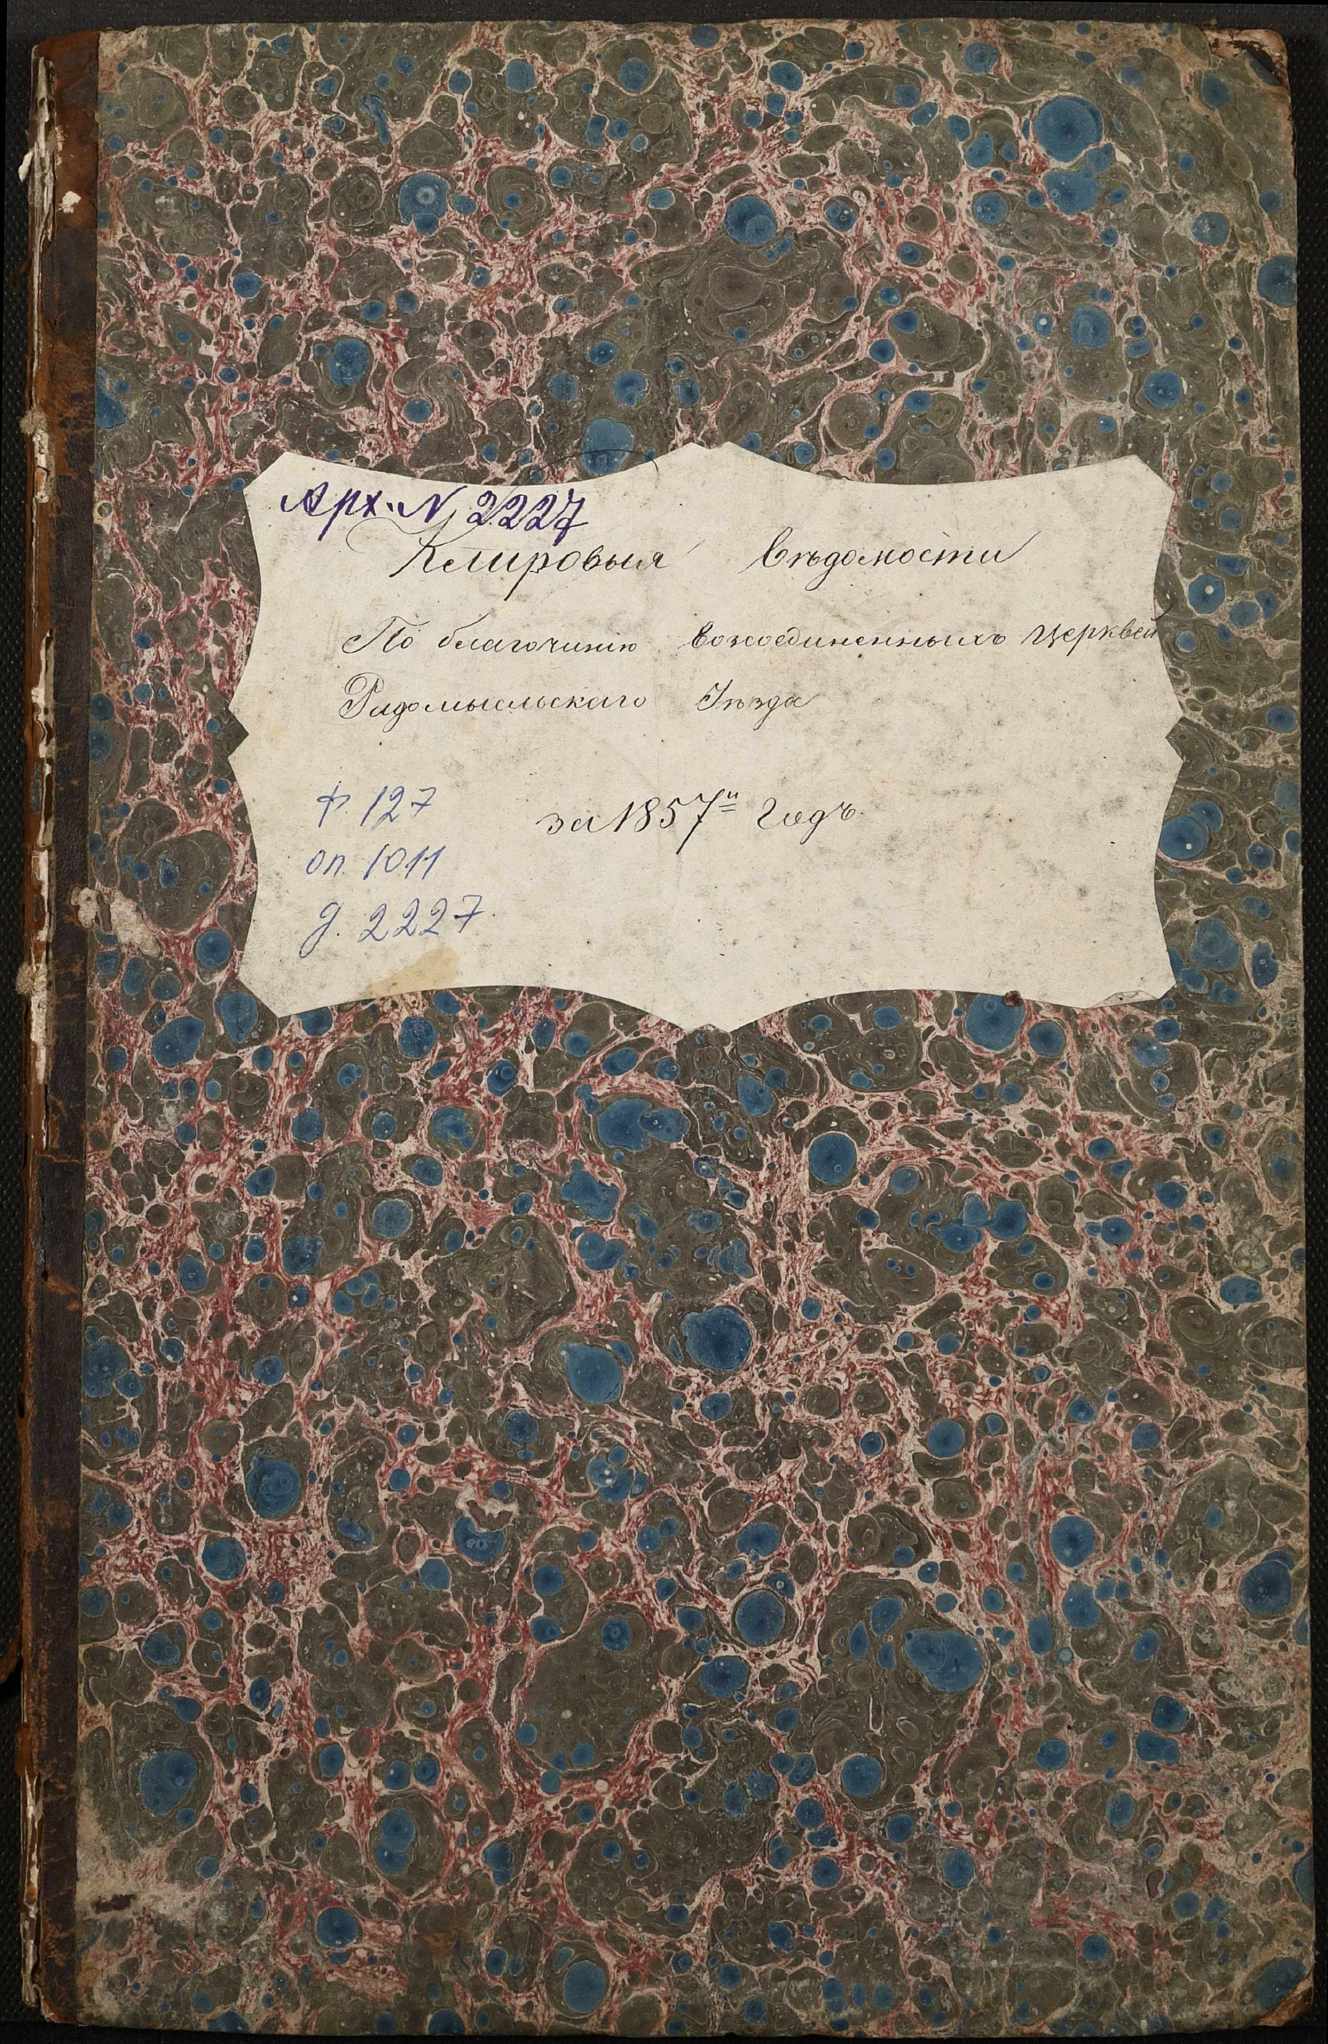 Арх. N 2227
Клировыя Вѣдомости
По благочинію возсоединенныхъ церквей
Радомысльскаго Уѣзда
за 1857й Годъ.
ф. 127
оп. 1011
д. 2227.